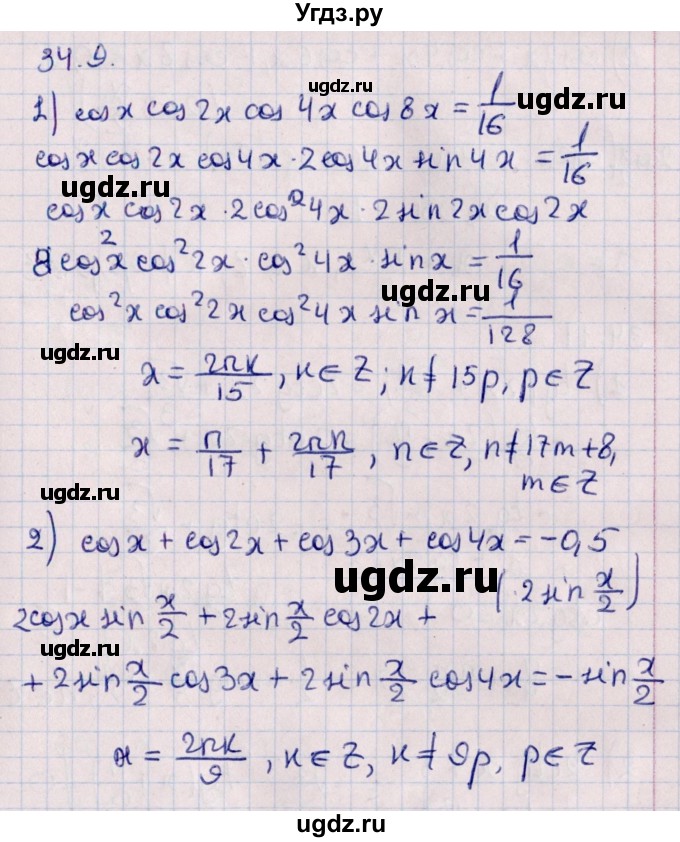 Угдз.ру
34.9.
1) cos x cos 2x cos 4x cos 8x = 1/16
ugdz.ru
cos x cos 2x cos 4x · 2cos 4x sin 4x = 1/16
ugdz.ru
ugdz.ru
cos x cos 2x · 2cos² 4x · 2 sin 2x cos 2x
8 cos² x cos² 2x · cos² 4x · sin x = 1/16
ugdz.ru
cos² x cos² 2x cos² 4x sin x = 1/128
ugdz.ru
ugdz.ru
x = 2πk/15, k ∈ Z; k ≠ 15p, p ∈ Z
x = π/17 + 2πn/17, n ∈ Z, n ≠ 17m + 8,
m ∈ Z
ugdz.ru
2) cos x + cos 2x + cos 3x + cos 4x = -0,5
ugdz.ru
(· 2 sin x/2)
2cos x sin x/2 + 2 sin x/2 cos 2x +
ugdz.ru
+ 2 sin x/2 cos 3x + 2 sin x/2 cos 4x = - sin x/2
x = 2πk/9, k ∈ Z, k ≠ 9p, p ∈ Z
ugdz.ru
ugdz.ru